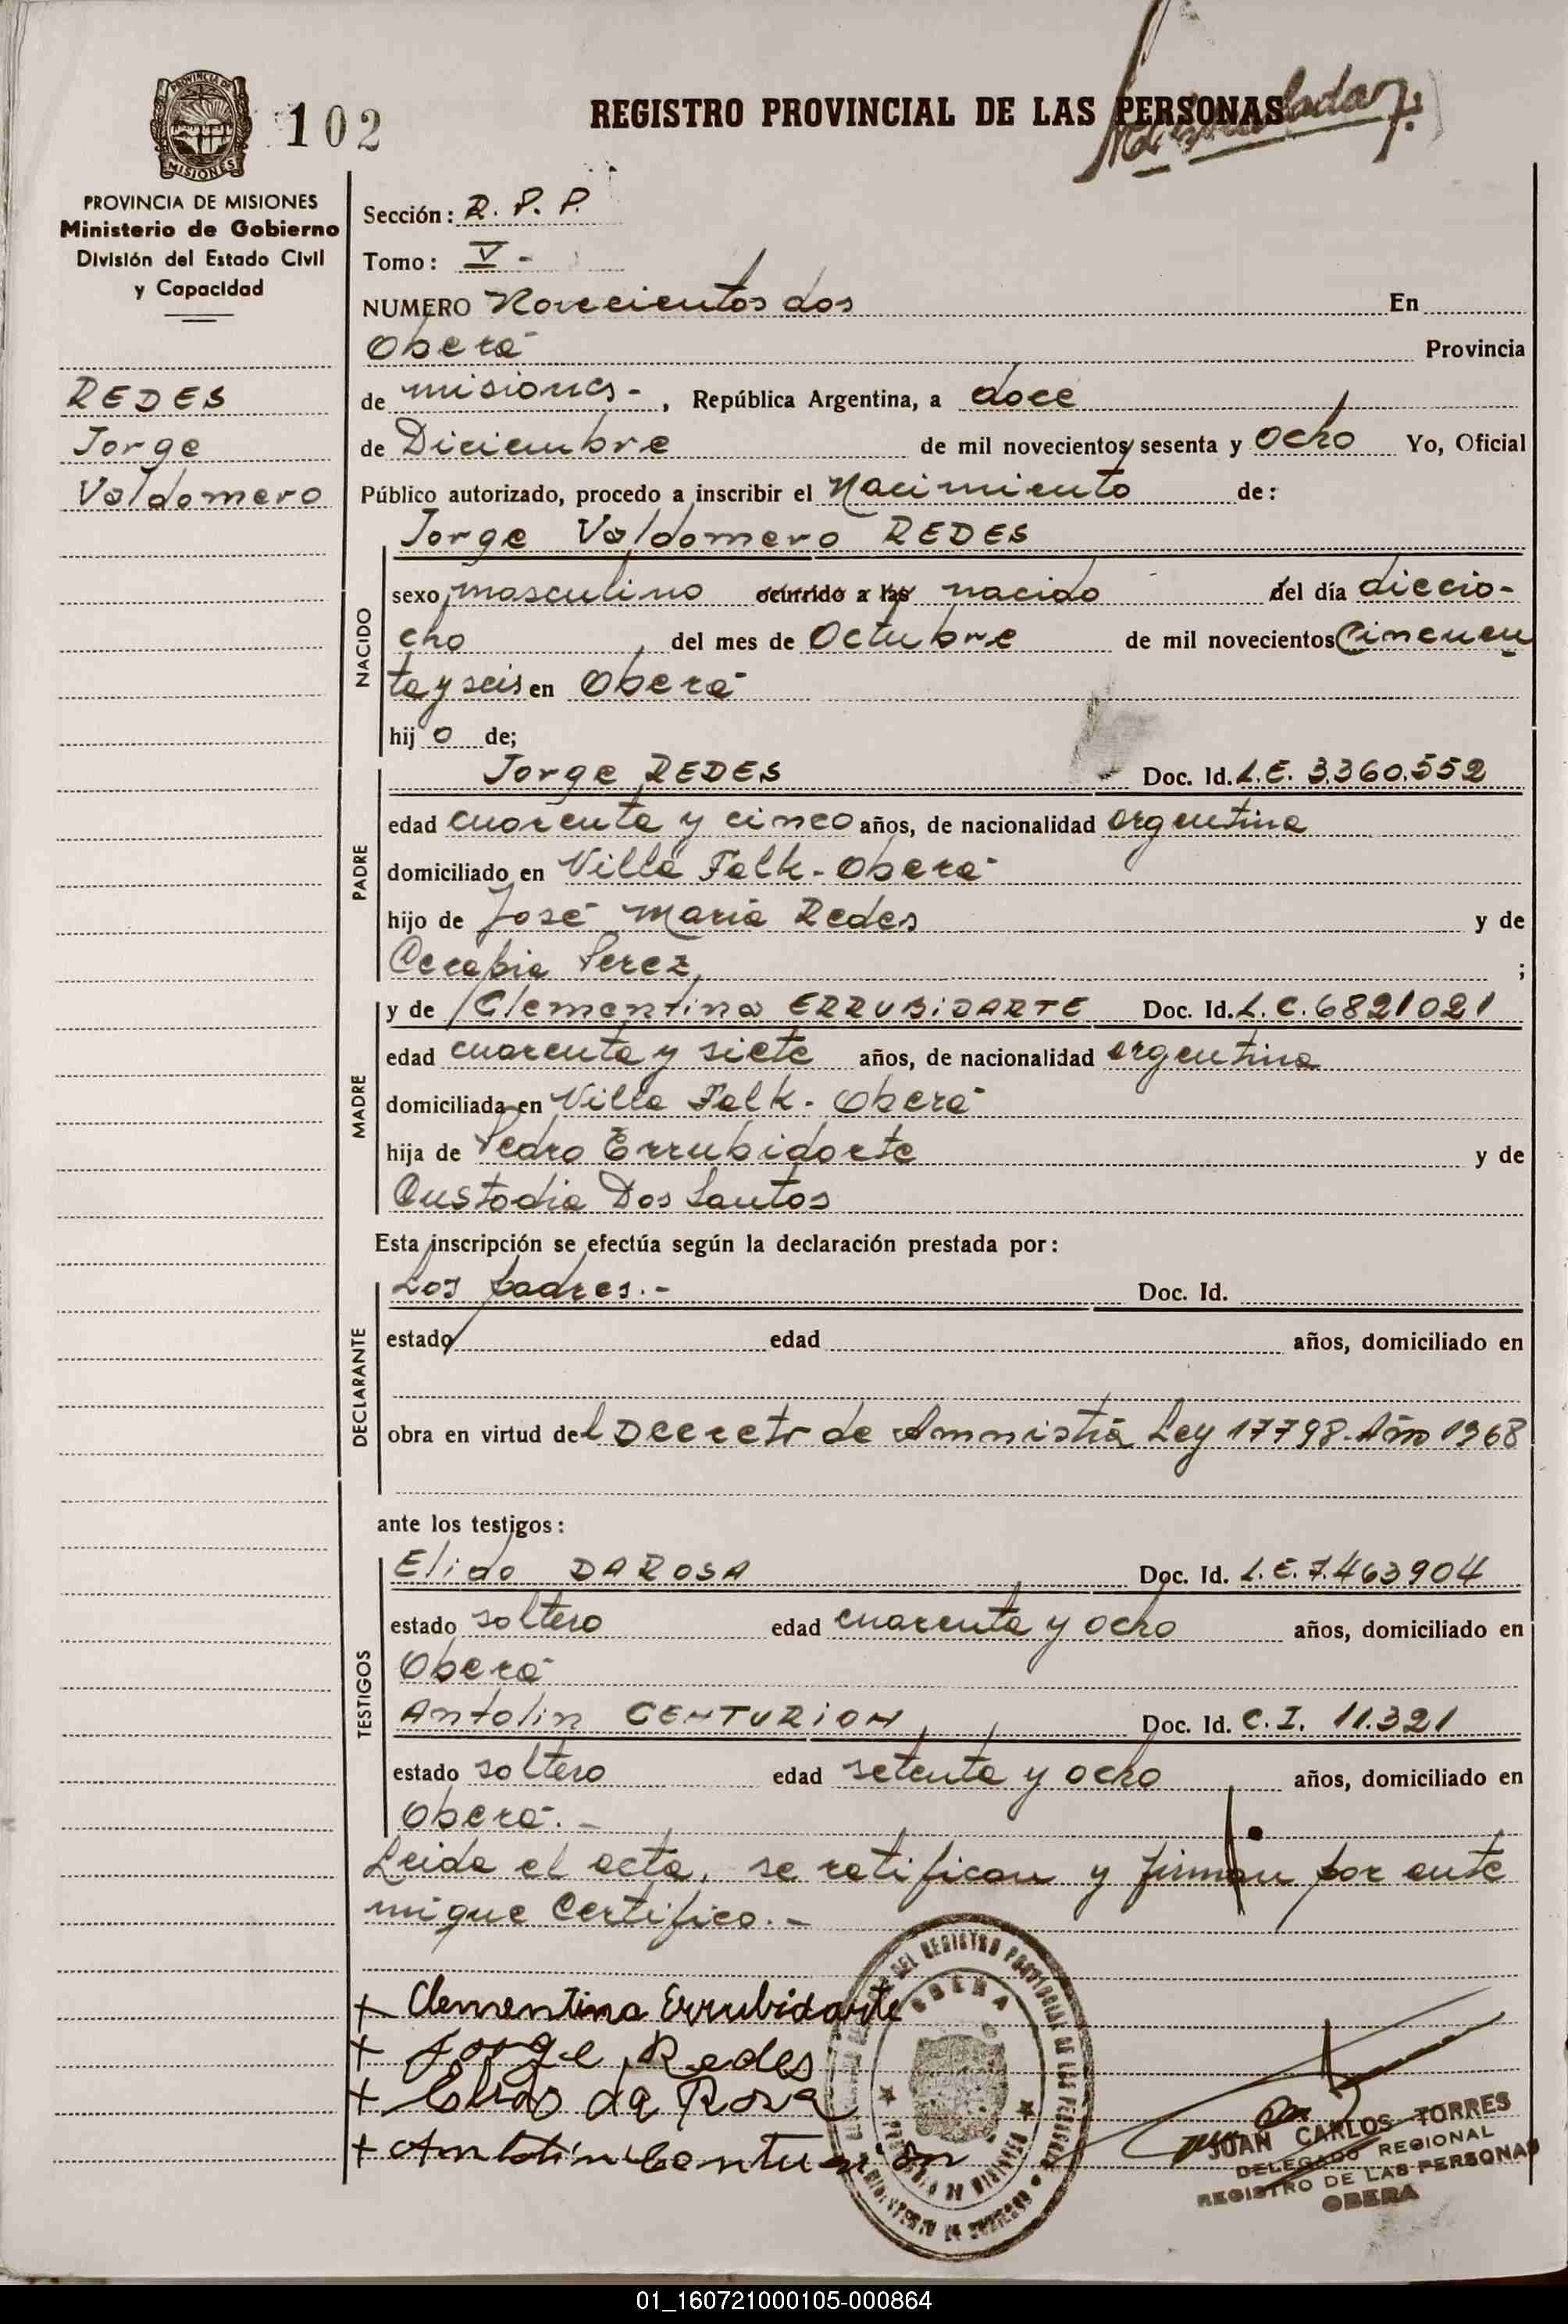 PROVINCIA DE
MISIONES
102
REGISTRO PROVINCIAL DE LAS PERSONAS
PROVINCIA DE MISIONES
Ministerio de Gobierno
División del Estado Civil
y Capacidad
REDES
Jorge
Valdomero
Sección: R. P. P.
Tomo: V -
NUMERO Novecientos dos En
Oberá Provincia
de misiones-, República Argentina, a doce
de Diciembre de mil novecientos sesenta y ocho Yo, Oficial
Público autorizado, procedo a inscribir el Nacimiento de:
Jorge Valdomero REDES
NACIDO
sexo masculino ocurrido a las nacido del día diecio-
cho, del mes de Octubre de mil novecientos Cincuen
ta y seis en Oberá
hij o de;
PADRE
Jorge REDES Doc. Id. L.E. 3.360.552
edad cuarenta y cinco años, de nacionalidad argentina
domiciliado en Villa Falk - Oberá
hijo de José María Redes y de
Cerapia Perez, ;
MADRE
y de Clementina ERRUBIDARTE Doc. Id. L. C. 6821021
edad cuarenta y siete años, de nacionalidad argentina
domiciliada en Villa Falk - Oberá
hija de Pedro Errubidarte y de
Custodia Dos Santos
Esta inscripción se efectúa según la declaración prestada por:
DECLARANTE
Los padres.- Doc. Id.
estado edad años, domiciliado en
obra en virtud del Decreto de Amnistía Ley 17798- Año 1968
ante los testigos:
TESTIGOS
Elido DAROSA Doc. Id. L. E. 7.463904
estado soltero edad cuarenta y ocho años, domiciliado en
Oberá
Antolin CENTURION, Doc. Id. C. I. 11.321
estado soltero edad setenta y ocho años, domiciliado en
Oberá.-
Leida el acta, se ratifican y firman por ante
mi que Certifico.-
+ Clementina Errubidarte
+ Jorge Redes
+ Elido da Rosa
+ Antolin Centurion
DEL REGISTRO PROVINCIAL DE LAS PERSONAS
OBERA
MINISTERIO DE GOBIERNO
JUAN CARLOS TORRES
DELEGADO REGIONAL
REGISTRO DE LAS PERSONAS
OBERA
01_160721000105-000864